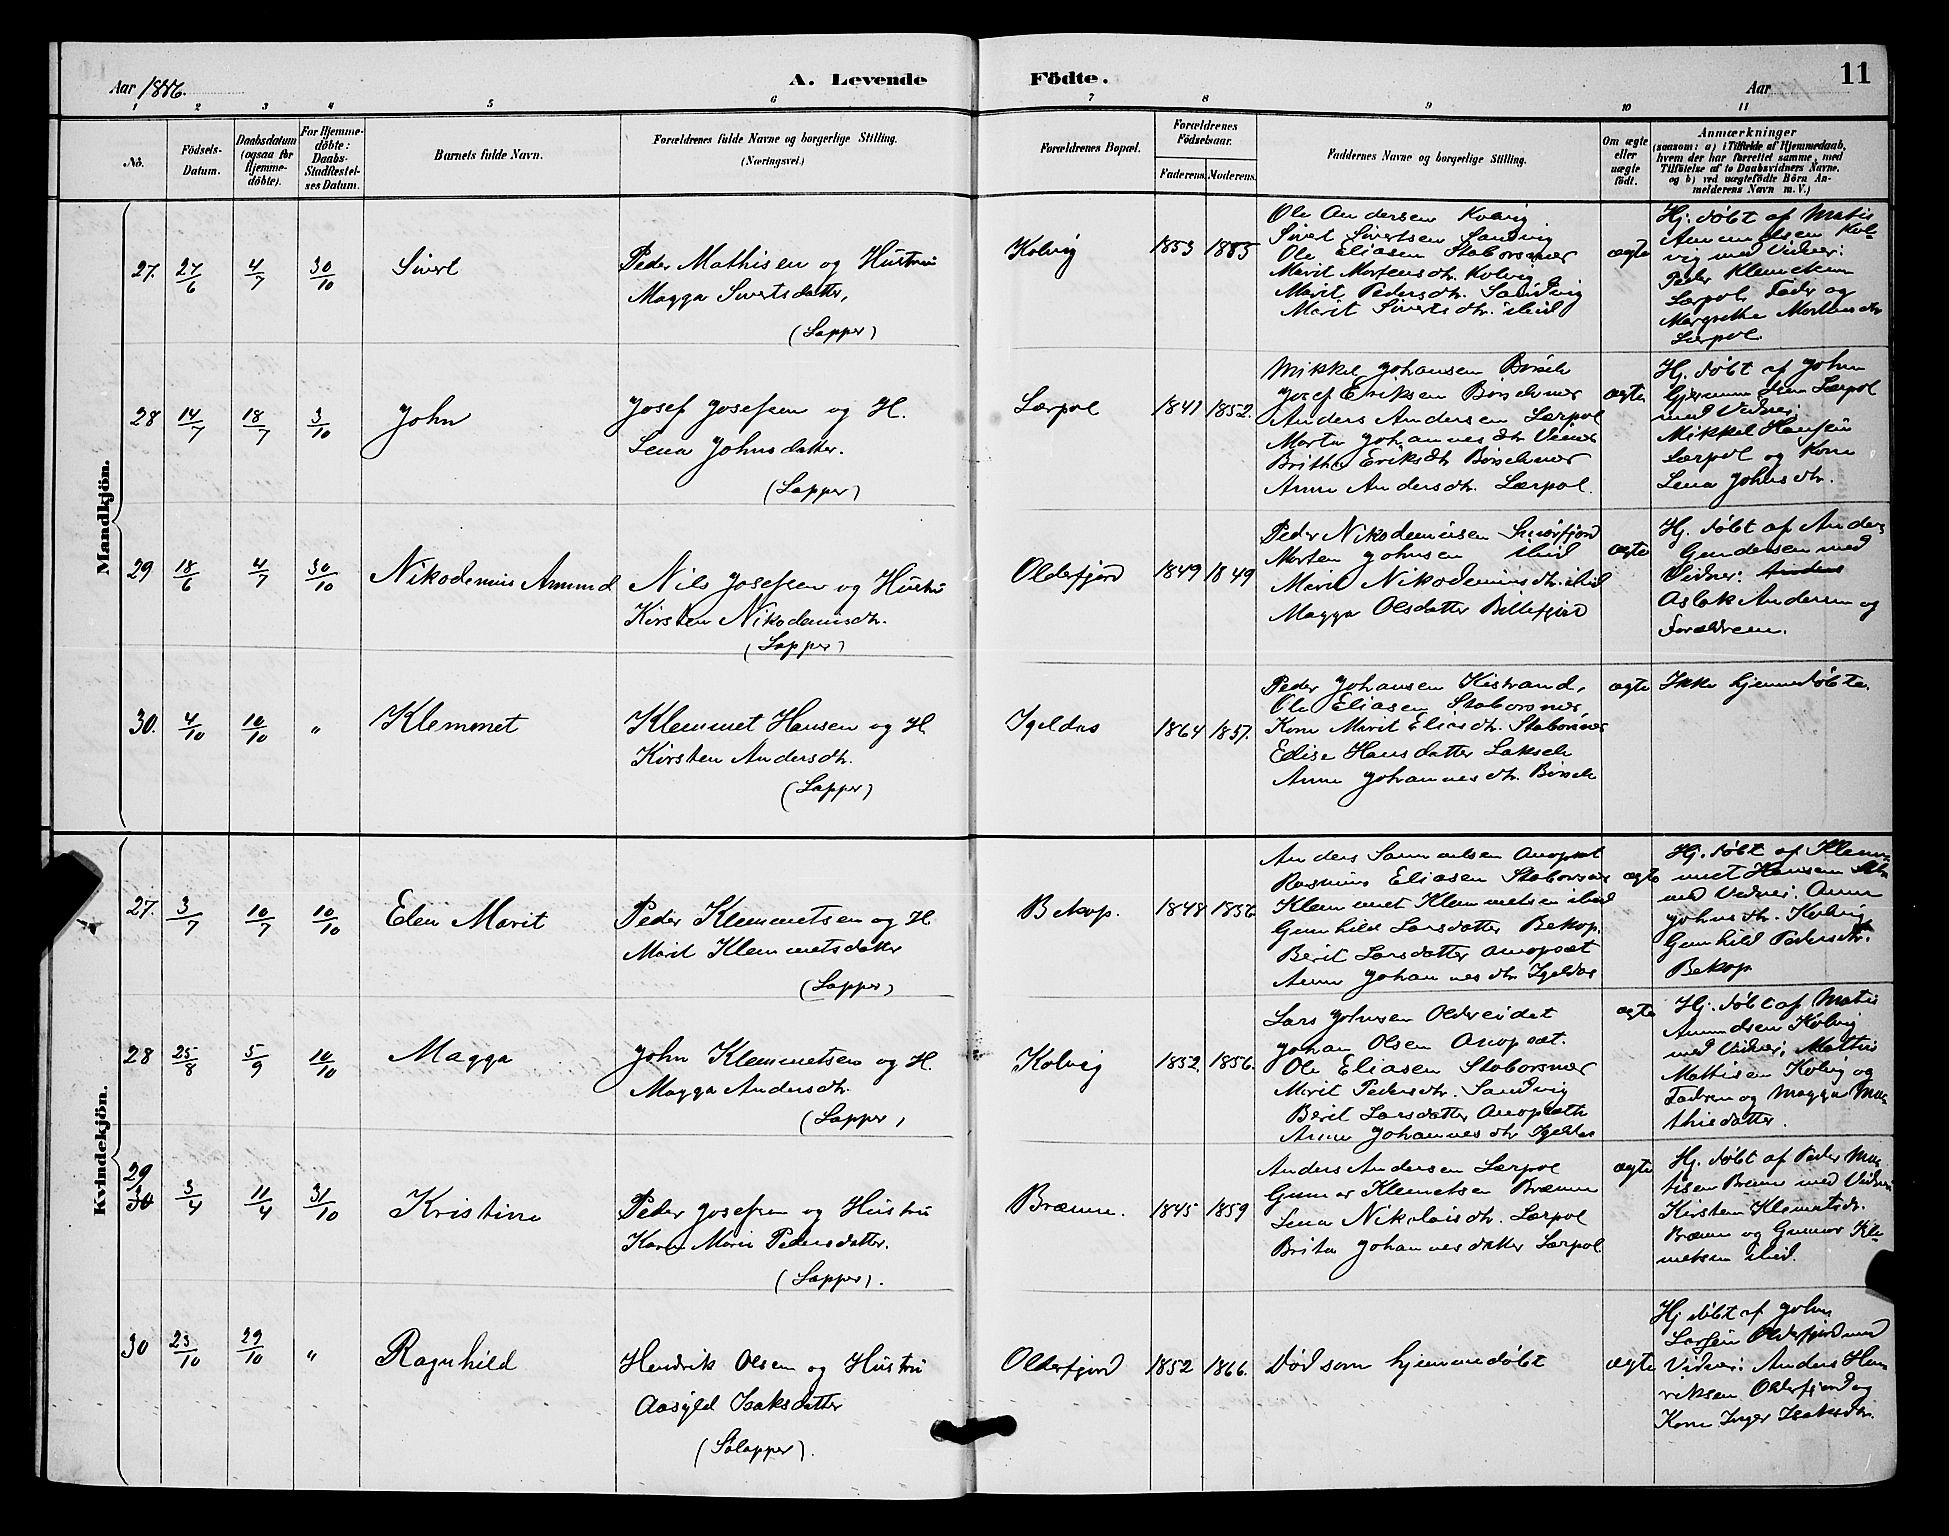 Aar 1886.
A. Levende Födte.
Aar
11
1 2 3 4 5 6 7 8 9 10 11
No.
Födsels-Datum.
Daabsdatum (ogsaa for Hjemme-döbte).
For Hjemme-döbte: Daabs-Stadfestel-ses Datum.
Barnets fulde Navn.
Forældrenes fulde Navne og borgerlige Stilling.
(Næringsvei.)
Forældrenes Bopæl.
Forældrenes Födselsaar.
Faderens. Moderens.
Faddernes Navne og borgerlige Stilling.
Om ægte eller uægte födt.
Anmærkninger
(saasom: a) i Tilfælde af Hjemmedaab, hvem der har forrettet samme, med Tilföielse af to Daabsvidners Navne, og b) ved uægtefödte Börn An-melderens Navn m. V.)
Mandkjön.
27. 24/6 4/7 30/10 Sivert
Peder Mathisen og Hustru
Magga Sivertsdatter,
(Lapper)
Kolvig 1853 1885
Ole Andersen Kolvig
Sivert Sivertsen Sandvig
Ole Eliasen Staborsnær
Marit Mortensdtr. Kolvig
Marit Pedersdtr. Sandvig
Marit Sivertsdtr. ibid
ægte
Hj. døbt af Matis
Amundsen Kol-
vig med Vidner:
Peder Klemetsen
Lærpol, Fader og
Margrethe Mortensdtr
Lærpol.
28 14/7 18/7 3/10 John
Josef Josefsen og H.
Lena Johnsdatter.
(Lapper)
Lærpol 1841 1852.
Mikkel Johansen Børsele
Josef Eriksen Børselvnær
Anders Andersen Lærpol
Marta Johannesdtr Viener
Britha Eriksdtr Børselvnær
Anne Andersdtr. Lærpol.
ægte
Hj. døbt af John
Lærpol
med Vidner,
Mikkel Hansen
Lærpol og Kone
Lena Johnsdtr.
29 18/6 4/7 30/10 Nikodemus Amund
Nils Josefsen og Hustru
Kirsten Nikodemusdtr.
(Lapper)
Oldefjord 1849 1849
Peder Nikodemusen Smørfjord
Morten Johnsen ibid
Marit Nikodemusdtr. ibid
Magga Olsdatter Billefjord
ægte
Hj. døbt af Anders
Gundersen med
Vidner: Anders
Aslak Andersen og
Forældrene.
30. 4/10 10/10 " Klemmet
Klemmet Hansen og H.
Kirsten Andersdtr.
(Lapper)
Igeldas 1864 1857.
Peder Johansen Kistrand,
Ole Eliasen Staborsnær,
Kone Marit Eliasdtr. Staborsnær
Edise Hansdatter Lakselv
Anne Johannesdtr. Børselv
ægte
Ikke hjemmedøbte.
Kvindekjön.
27. 3/7 10/7 10/10 Elen Marit
Peder Klemmetsen og H.
Marit Klemmetsdatter
(Lapper)
Bekop. 1848 1856
Anders Samuelsen Anopsæt
Rasmus Eliasen Staborsnær
Klemmet Klemmetsen ibid
Gunhild Larsdatter Bekop.
Berit Larsdatter Anopsæt
Anne Johannesdtr Igeldas
ægte
Hj. døbt af Klem-
met Hansen
med Vidner: Anne
Johnsdtr. Kolvig
Gunhild Pedersdtr.
Bekop
28 25/8 5/9 10/10 Magga
John Klemmetsen og H.
Magga Andersdtr.
(Lapper)
Kolvig 1852 1856.
Lars Johnsen Oldereidet
Johan Olsen Anopsæt.
Ole Eliasen Staborsnær
Marit Pedersdtr. Sandvig
Berit Larsdatter Anopsæt
Anne Johannesdtr Igeldas
ægte
Hj. døbt af Matis
Amundsen Kolvig
med Vidner; Mathis
Mathisen Kolvig og
Fadren og Magga Ma-
thisdatter.
29 30 3/4 11/4 31/10 Kristine
Peder Josefsen og Hustru
Karen Marie Pedersdatter.
(Lapper).
Brænne. 1845 1859
Anders Andersen Lærpol
Gunnar Klemetsen Brænne
Lena Nikolaisdtr. Lærpol
Brita Johannesdatter Lærpol
ægte
Hj. døbt af Peder Ma-
tisen Brenne med Vidner
Kirsten Klemetsdr.
Brænne og Gunnar Kle-
metsen ibid.
30 23/10 29/10 " Ragnhild
Hendrik Olsen og Hustru
Aasyld Isaksdatter
(Sølapper).
Oldefjord 1852 1866.
Død som hjemmedøbt
ægte
Hj døbt af John
Larsen Oldefjord med
Vidner: Anders Hen-
riksen Oldefjord og
Kone Inger Isaksdtr.